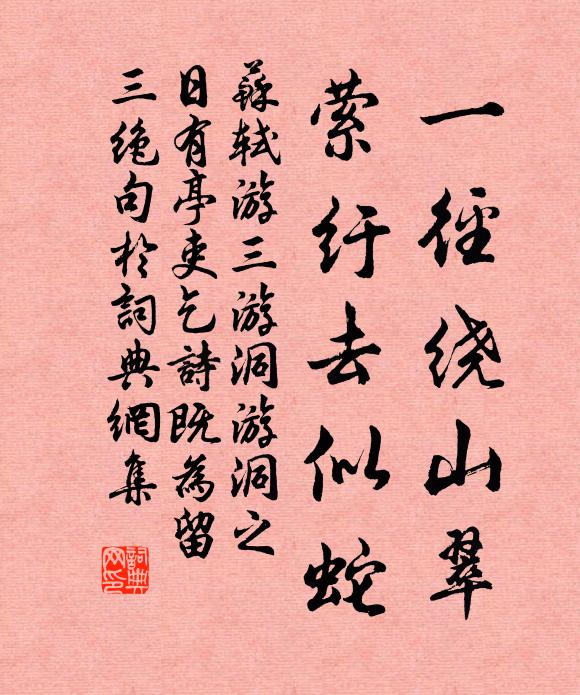 一径绕山翠
萦纡去似蛇
蘇轼游三游洞游洞之
日有亭吏乞詩既為留
三绝句於詞典網集
詞典网印